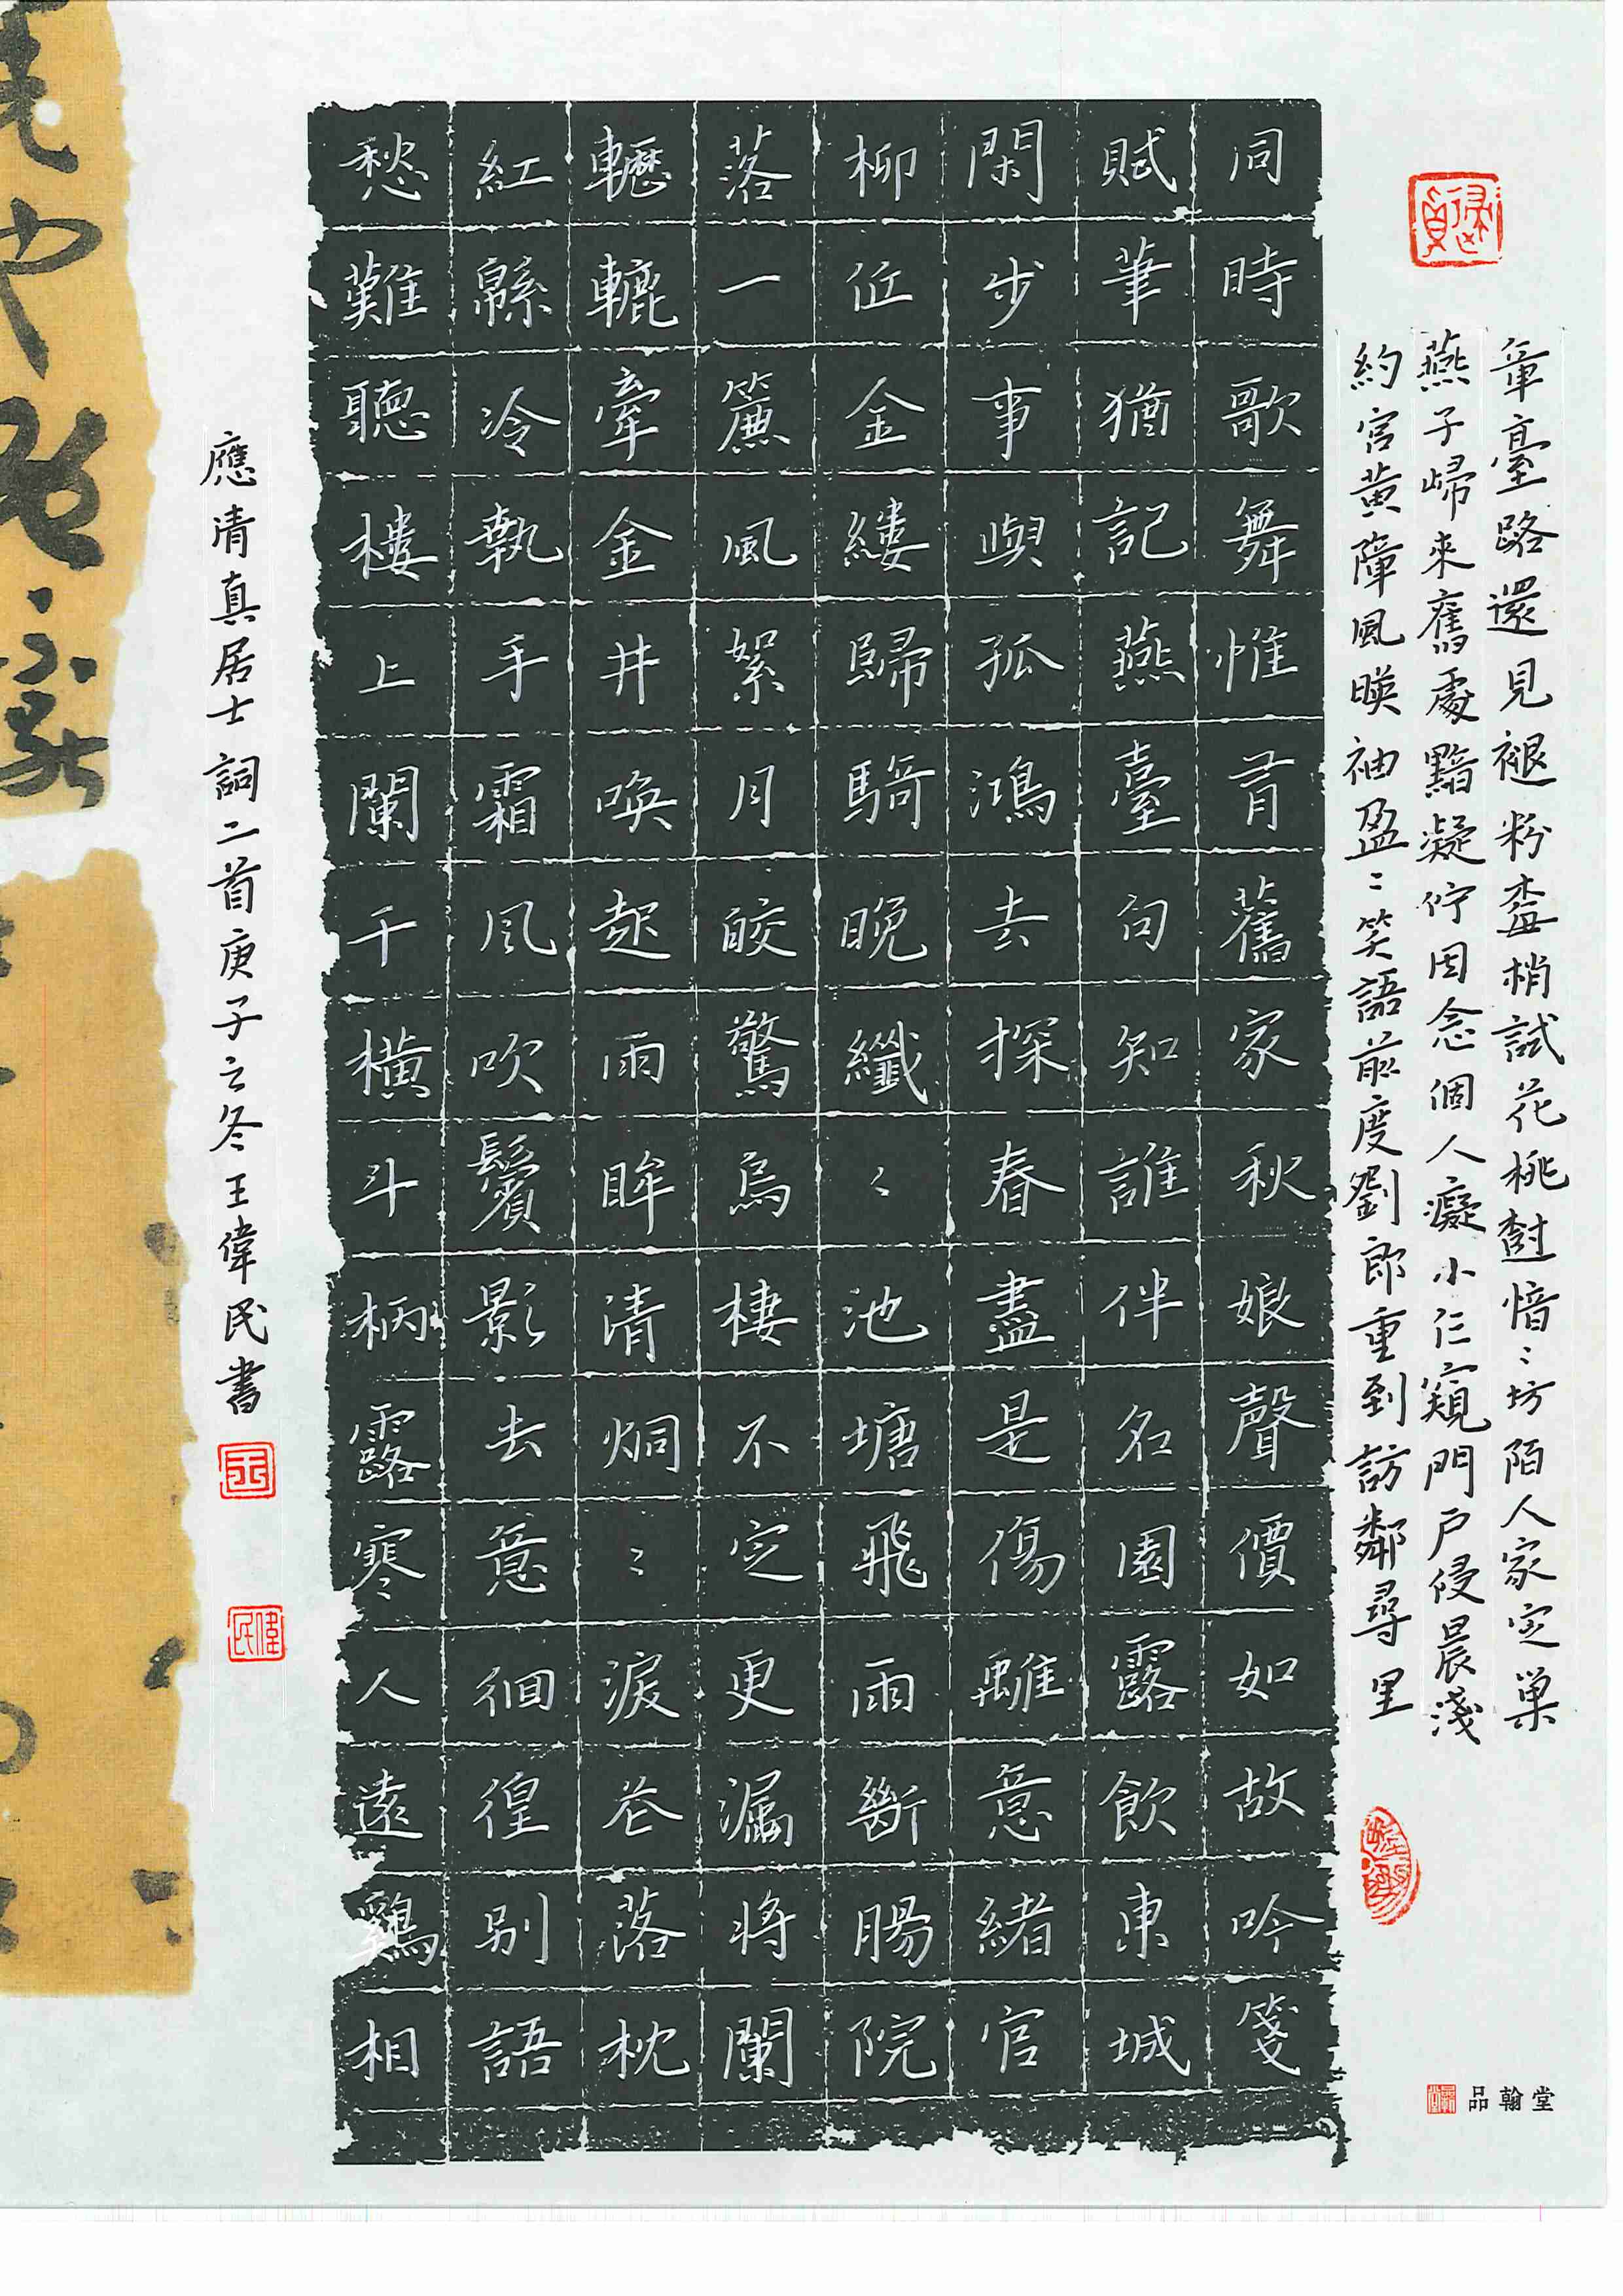 章臺路還見褪粉梅梢試花桃樹愔〻坊陌人家定巢
燕子歸來舊處黯凝佇因念個人癡小乍窺門戶侵晨淺
約宮黃障風暎袖盈〻笑語前度劉郎重到訪鄰尋里
同時歌舞惟前舊家秋娘聲價如故吟箋
賦筆猶記燕臺句知誰伴名園露飲東城
閑步事與孤鴻去探春盡是傷離意緒官
柳低金縷歸騎晚纖〻池塘飛雨斷腸院
落一簾風絮月皎驚烏棲不定更漏將闌
轣轆牽金井喚起兩眸清炯〻淚花落枕
紅緜冷執手霜風吹鬢影去意徊徨別語
愁難聽樓上闌干橫斗柄露寒人遠鷄相
應清真居士詞二首庚子之冬王偉民書
王
偉民
品翰堂